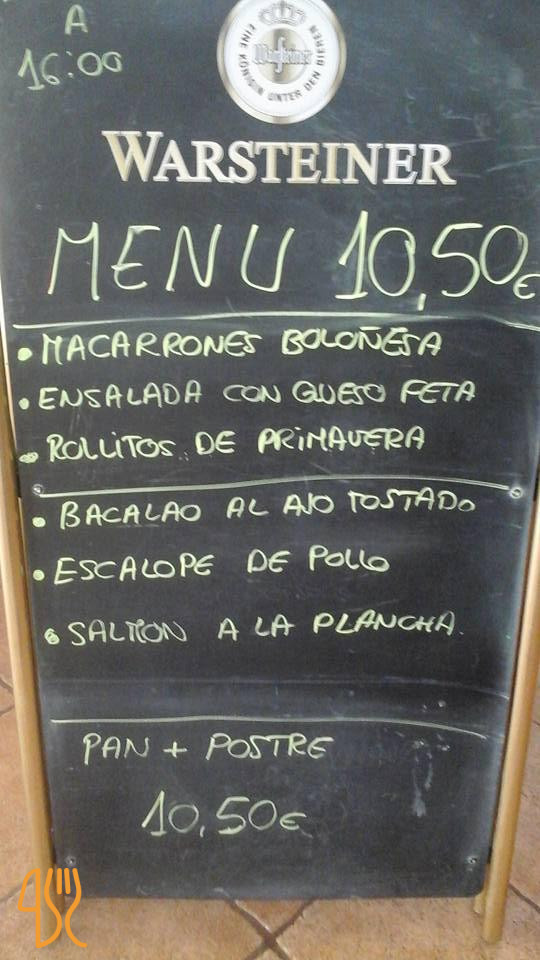 A
16:00
EINE KÖNIGIN UNTER DEN BIEREN
Warsteiner
WARSTEINER
MENU 10,50€
• MACARRONES BOLOÑESA
• ENSALADA CON QUESO FETA
• ROLLITOS DE PRIMAVERA
• BACALAO AL AJO TOSTADO
• ESCALOPE DE POLLO
• SALMON A LA PLANCHA.
PAN + POSTRE
10,50€